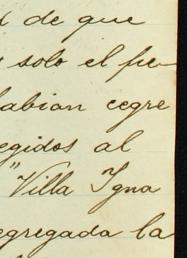 de que
solo el fue
habian cegre
egidos al
"Villa Igna
egregada la